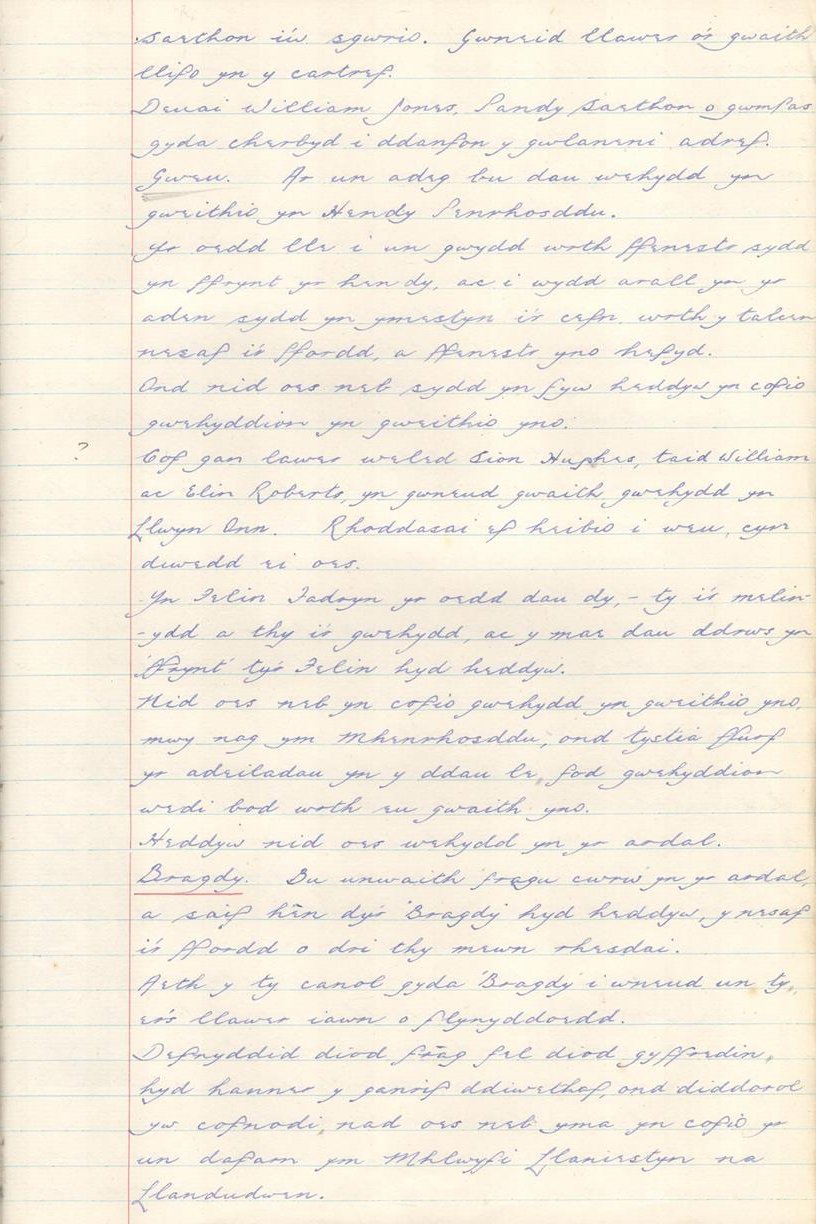 Saethon i'w sgwrio. Gwneid llawer o'r gwaith
llifo yn y cartref.
Deuai William Jones, Pandy Saethon o gwmpas
gyda cherbyd i ddanfon y gwlaneni adref.
Gweu. Ar un adeg bu dau wehydd yn
gweithio yn Hendy Penrhosddu.
Yr oedd lle i un gwydd wrth ffenestr sydd
yn ffrynt yr hen dy, ac i wydd arall yn yr
aden sydd yn ymestyn i'r cefn wrth y talcen
nesaf i'r ffordd, a ffenestr yno hefyd.
Ond nid oes neb sydd yn fyw heddyw yn cofio
gwehyddion yn gweithio yno.
? Cof gan lawer weled Sion Hughes, taid William
ac Elin Roberts, yn gwneud gwaith gwehydd yn
Llwyn Onn. Rhoddasai ef heibio i weu, cyn
diwedd ei oes.
Yn Felin Fadryn yr oedd dau dy, - ty i'r melin-
-ydd a thy i'r gwehydd, ac y mae dau ddrws yn
ffrynt ty'r Felin hyd heddyw.
Nid oes neb yn cofio gwehydd yn gweithio yno,
mwy nag ym Mhenrhosddu, ond tystia ffurf
yr adeiladau yn y ddau le, fod gwehyddion
wedi bod wrth eu gwaith yno.
Heddyw nid oes wehydd yn yr ardal.
Bragdy. Bu unwaith fragu cwrw yn yr ardal,
a saif hên dy'r 'Bragdy' hyd heddyw, y nesaf
i'r ffordd o dri thy mewn rhesdai.
Aeth y ty canol gyda 'Bragdy' i wneud un ty,
er's llawer iawn o flynyddoedd.
Defnyddid diod frâg fel diod gyffredin,
hyd hanner y ganrif ddiwethaf, ond diddorol
yw cofnodi, nad oes neb yma yn cofio yr
un dafarn ym Mhlwyfi Llaniestyn na
Llandudwen.